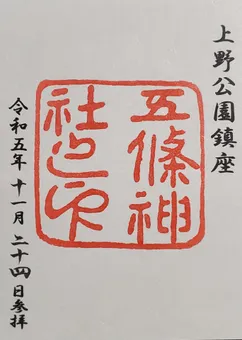 上野公園鎮座
五條神
社之印
令和五年十一月二十四日参拝